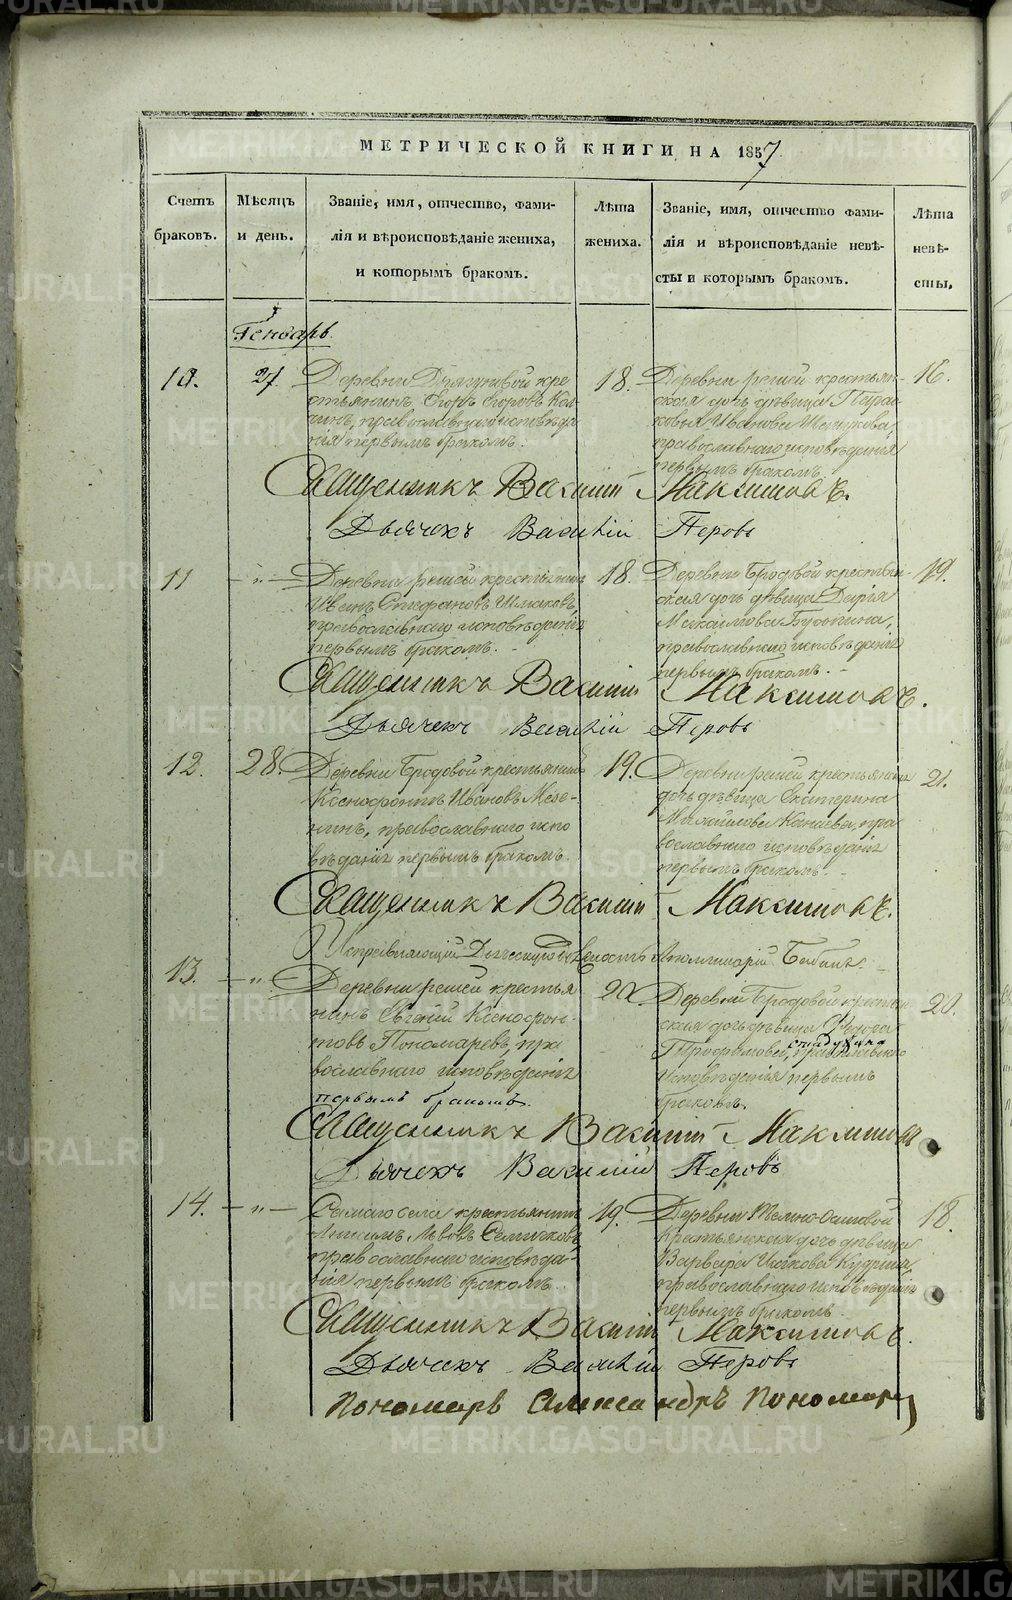 МЕТРИЧЕСКОЙ КНИГИ НА 1857
Счетъ браковъ.
Мѣсяцъ и день.
Званіе, имя, отчество, фами-
лія и вѣроисповѣданіе жениха,
и которымъ бракомъ.
Лѣта жениха.
Званіе, имя, отчество фами-
лія и вѣроисповѣданіе невѣ-
сты и которымъ бракомъ.
Лѣта невѣ-
сты.
Генварь
10.
27.
Деревни кре
стьянинъ Егоръ Егоровъ
православнаго исповѣда
нія первымъ бракомъ.
18.
Деревни крестьян-
ская дочь дѣвица Парас
ковья Иванова
православнаго исповѣданія
первымъ бракомъ
16.
Священникъ Василій Максимовъ.
Дьячекъ Василій Перовъ
11
— „ —
Деревни крестьянинъ
Иванъ Стефановъ Шмаковъ
православнаго исповѣданія
первымъ бракомъ. -
18.
Деревни Бродовой крестьян-
ская дочь дѣвица Дарья
Максимова
православнаго исповѣданія
первымъ бракомъ. -
19.
Священникъ Василій Максимовъ.
Дьячекъ Василій Перовъ
12.
28.
Деревни Бродовой крестьянинъ
Ксенофонтъ Ивановъ Мезе-
нинъ, православнаго испо
вѣданія первымъ бракомъ
19.
Деревни крестьянская
дочь дѣвица Екатерина
Михайлова Канаева, пра
вославнаго исповѣданія
первымъ бракомъ. -
21.
Священникъ Василій Максимовъ.
Исправляющій
13.
— „ —
Деревни крестья
нинъ Евгеній Ксенофон-
товъ Пономаревъ, пра
вославнаго исповѣданія
первымъ бракомъ.
20
Деревни Бродовой крестьян-
ская дочь дѣвица
Трофимова, православнаго
исповѣданія первымъ
бракомъ.
20.
Священникъ Василій Максимовъ
Дьячекъ Василій Перовъ
14.
— „ —
Самаго села крестьянинъ
Львовъ
православнаго исповѣда-
нія первымъ бракомъ.
19.
Деревни
Крестьянская дочь дѣвица
Варвара Исакова Кудрина,
православнаго исповѣданія
первымъ бракомъ.
18.
Священникъ Василій Максимовъ.
Дьячекъ Василій Перовъ
Пономарь Александръ Пономарев
METRIKI.GASO-URAL.RU